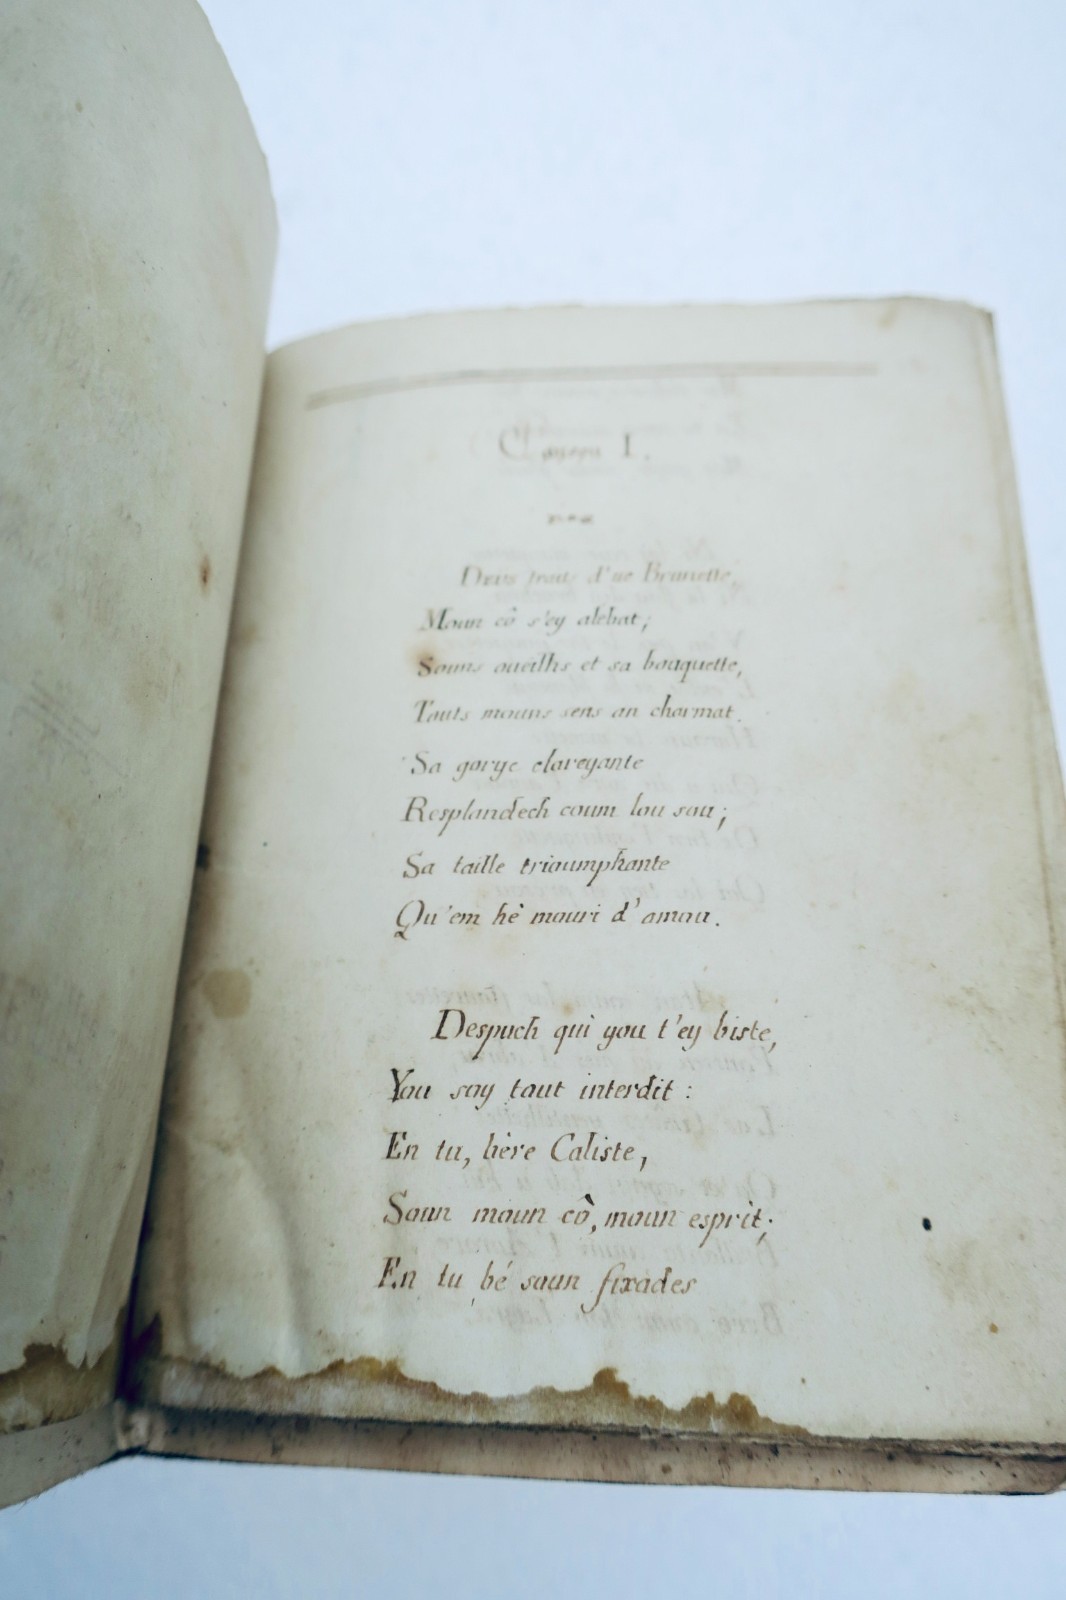 I.
Deus traits d'ue Brunette,
Moun cô s'ey alebat;
Souns oueilhs et sa bouquette,
Touts mouns sens an charmat.
Sa gorye clareyante
Resplandech coum lou sou;
Sa taille trioumphante
Qu'em hè mouri d'amou.
Despuch qui you t'ey biste,
You soy tout interdit :
En tu, bère Caliste,
Soun moun cô, moun esprit;
En tu bé soun fixades